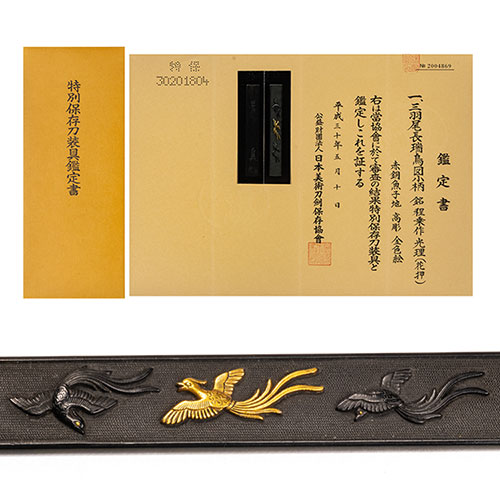 特別保存刀装具鑑定書
特保
30201804
№ 2004869
鑑定書
一、三羽尾長瑞鳥図小柄 銘 程乗作 光理(花押)
赤銅魚子地 高彫 金色絵
右は當協會に於て審査の結果特別保存刀装具と
鑑定しこれを証する
平成三十年五月十日
公益財團法人 日本美術刀劍保存協會